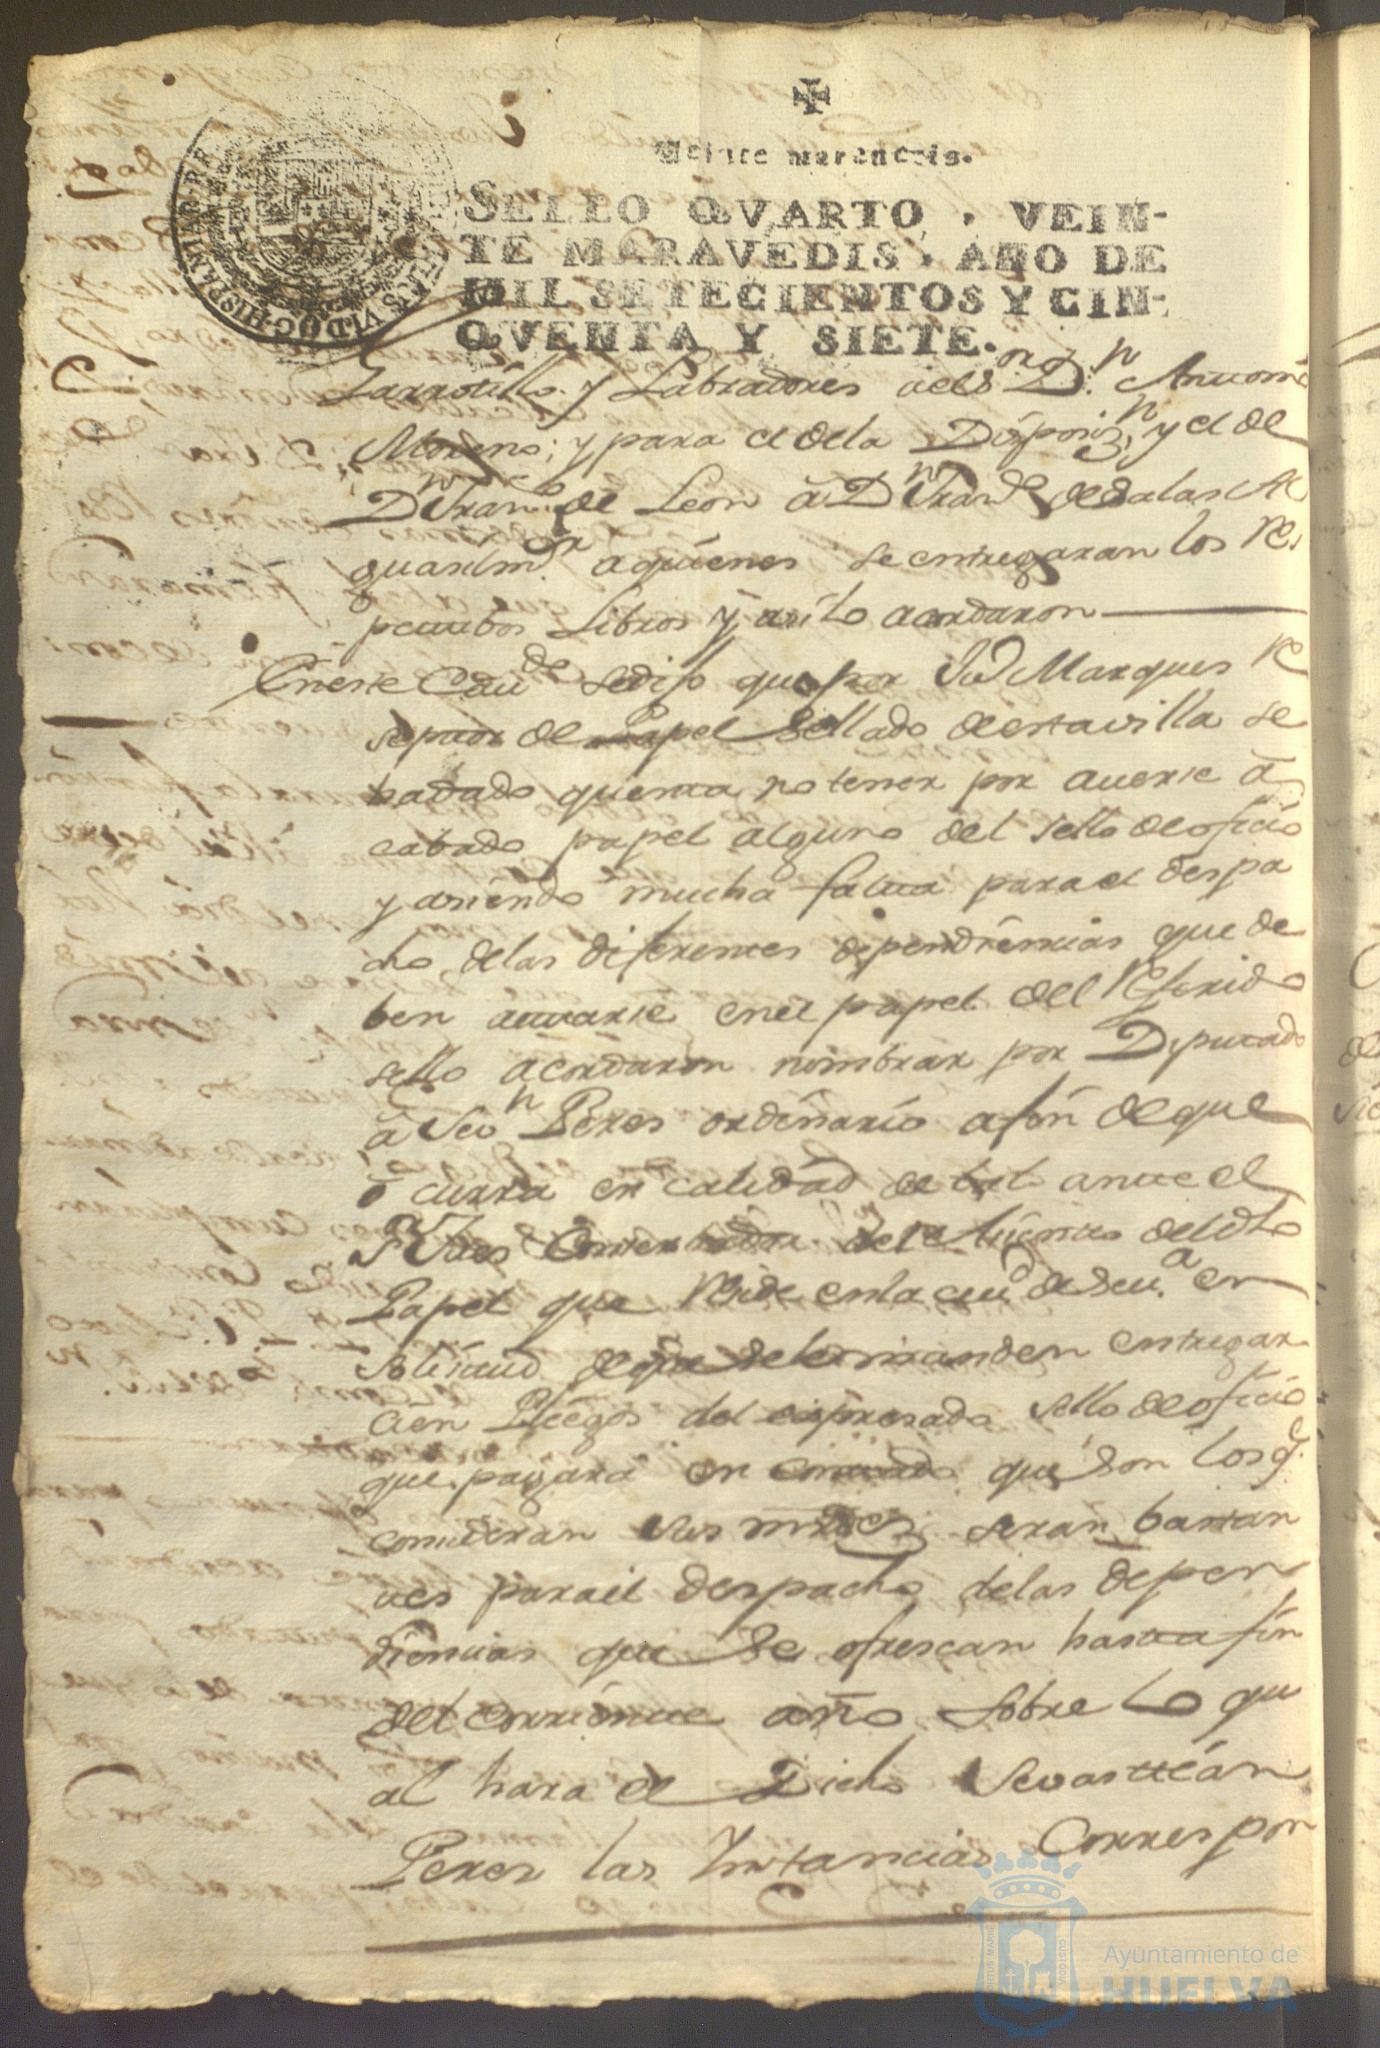 Veinte maravedis.
SELLO QVARTO, VEIN-
TE MARAVEDIS, AÑO DE
MIL SETECIENTOS Y CIN-
QVENTA Y SIETE.
y Labradores Dn Antoni
Moreno; y para el dela Disposizn, y el de
Dn Franco de Leon â Dn Franco de Salas
aquienes se entregaran los Rs
pectibos Libros y asilo acordaron
Eneste Cavdo sedijo que por Marques Re
septor de Papel Sellado de esta villa se
ha dado quenta no tener por averse â
cabado papel alguno del sello de oficio
y asiendo mucha falta para el despa
cho delas diferentes dependencias que de
ben actuarse enel papel del Referido
sello acordaron nombrar por Diputado
â Sevn Peres ordinario afin de que
ocurra en calidad de tal ante el
del dho
Papel que Reside enla ciud de Seva en
solicitud de que entregar
cien Pliegos del expresado sello de oficio
que pagara en contado que son los q.
consideran sus mrdes seran bastan
tes para el despacho delas depen
diencias que se ofrescan hasta fin
del corriente año sobre lo qu
al hara el Dicho Sevastian
Peres las Instancias Correspon
Ayuntamiento de
HUELVA